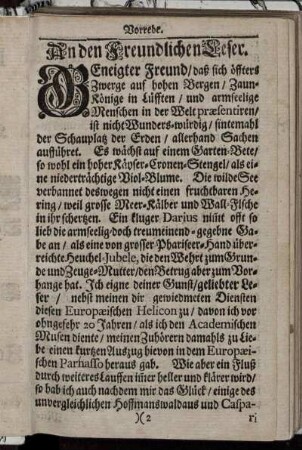 Vorrede.
An den Freundlichen Leser.
GEneigter Freund / daß sich öffters
Zwerge auf hohen Bergen / Zaun-
Könige in Lüfften / und armselige
Menschen in der Welt præsentiren /
ist nicht Wunders-würdig / sintemahl
der Schauplatz der Erden / allerhand Sachen
aufführet. Es wächst auf einem Garten-Bete /
so wohl ein hoher Käyser-Cronen-Stengel / als ei-
ne niederträchtige Viol-Blume. Die wilde See
verbannet deswegen nicht einen fruchtbaren He-
ring / weil grosse Meer-Kälber und Wall-Fische
in ihr schertzen. Ein kluger Darius nim̃t offt so
lieb die armseelig-doch treumeinend-gegebne Ga-
be an / als eine von grosser Phariseer-Hand über-
reichte Heuchel-Jubele, die den Wehrt zum Grun-
de und Zeuge-Mutter / den Betrug aber zum Vor-
hange hat. Ich eigne deiner Gunst / geliebter Le-
ser / nebst meinen dir gewiedmeten Diensten
diesen Europæischen Helicon zu / davon ich vor
ohngefehr 20 Jahren / als ich den Academischen
Musen diente / meinen Zuhörern damahls zu Lie-
be einen kurtzen Auszug hievon in dem Europæi-
schen Parnasso heraus gab. Wie aber ein Fluß
durch weiteres Lauffen im̃er heller und klärer wird /
so hab ich auch nachdem mir das Glück / einige des
unvergleichlichen Hoffmanswaldaus und Caspa-
)(2 ri